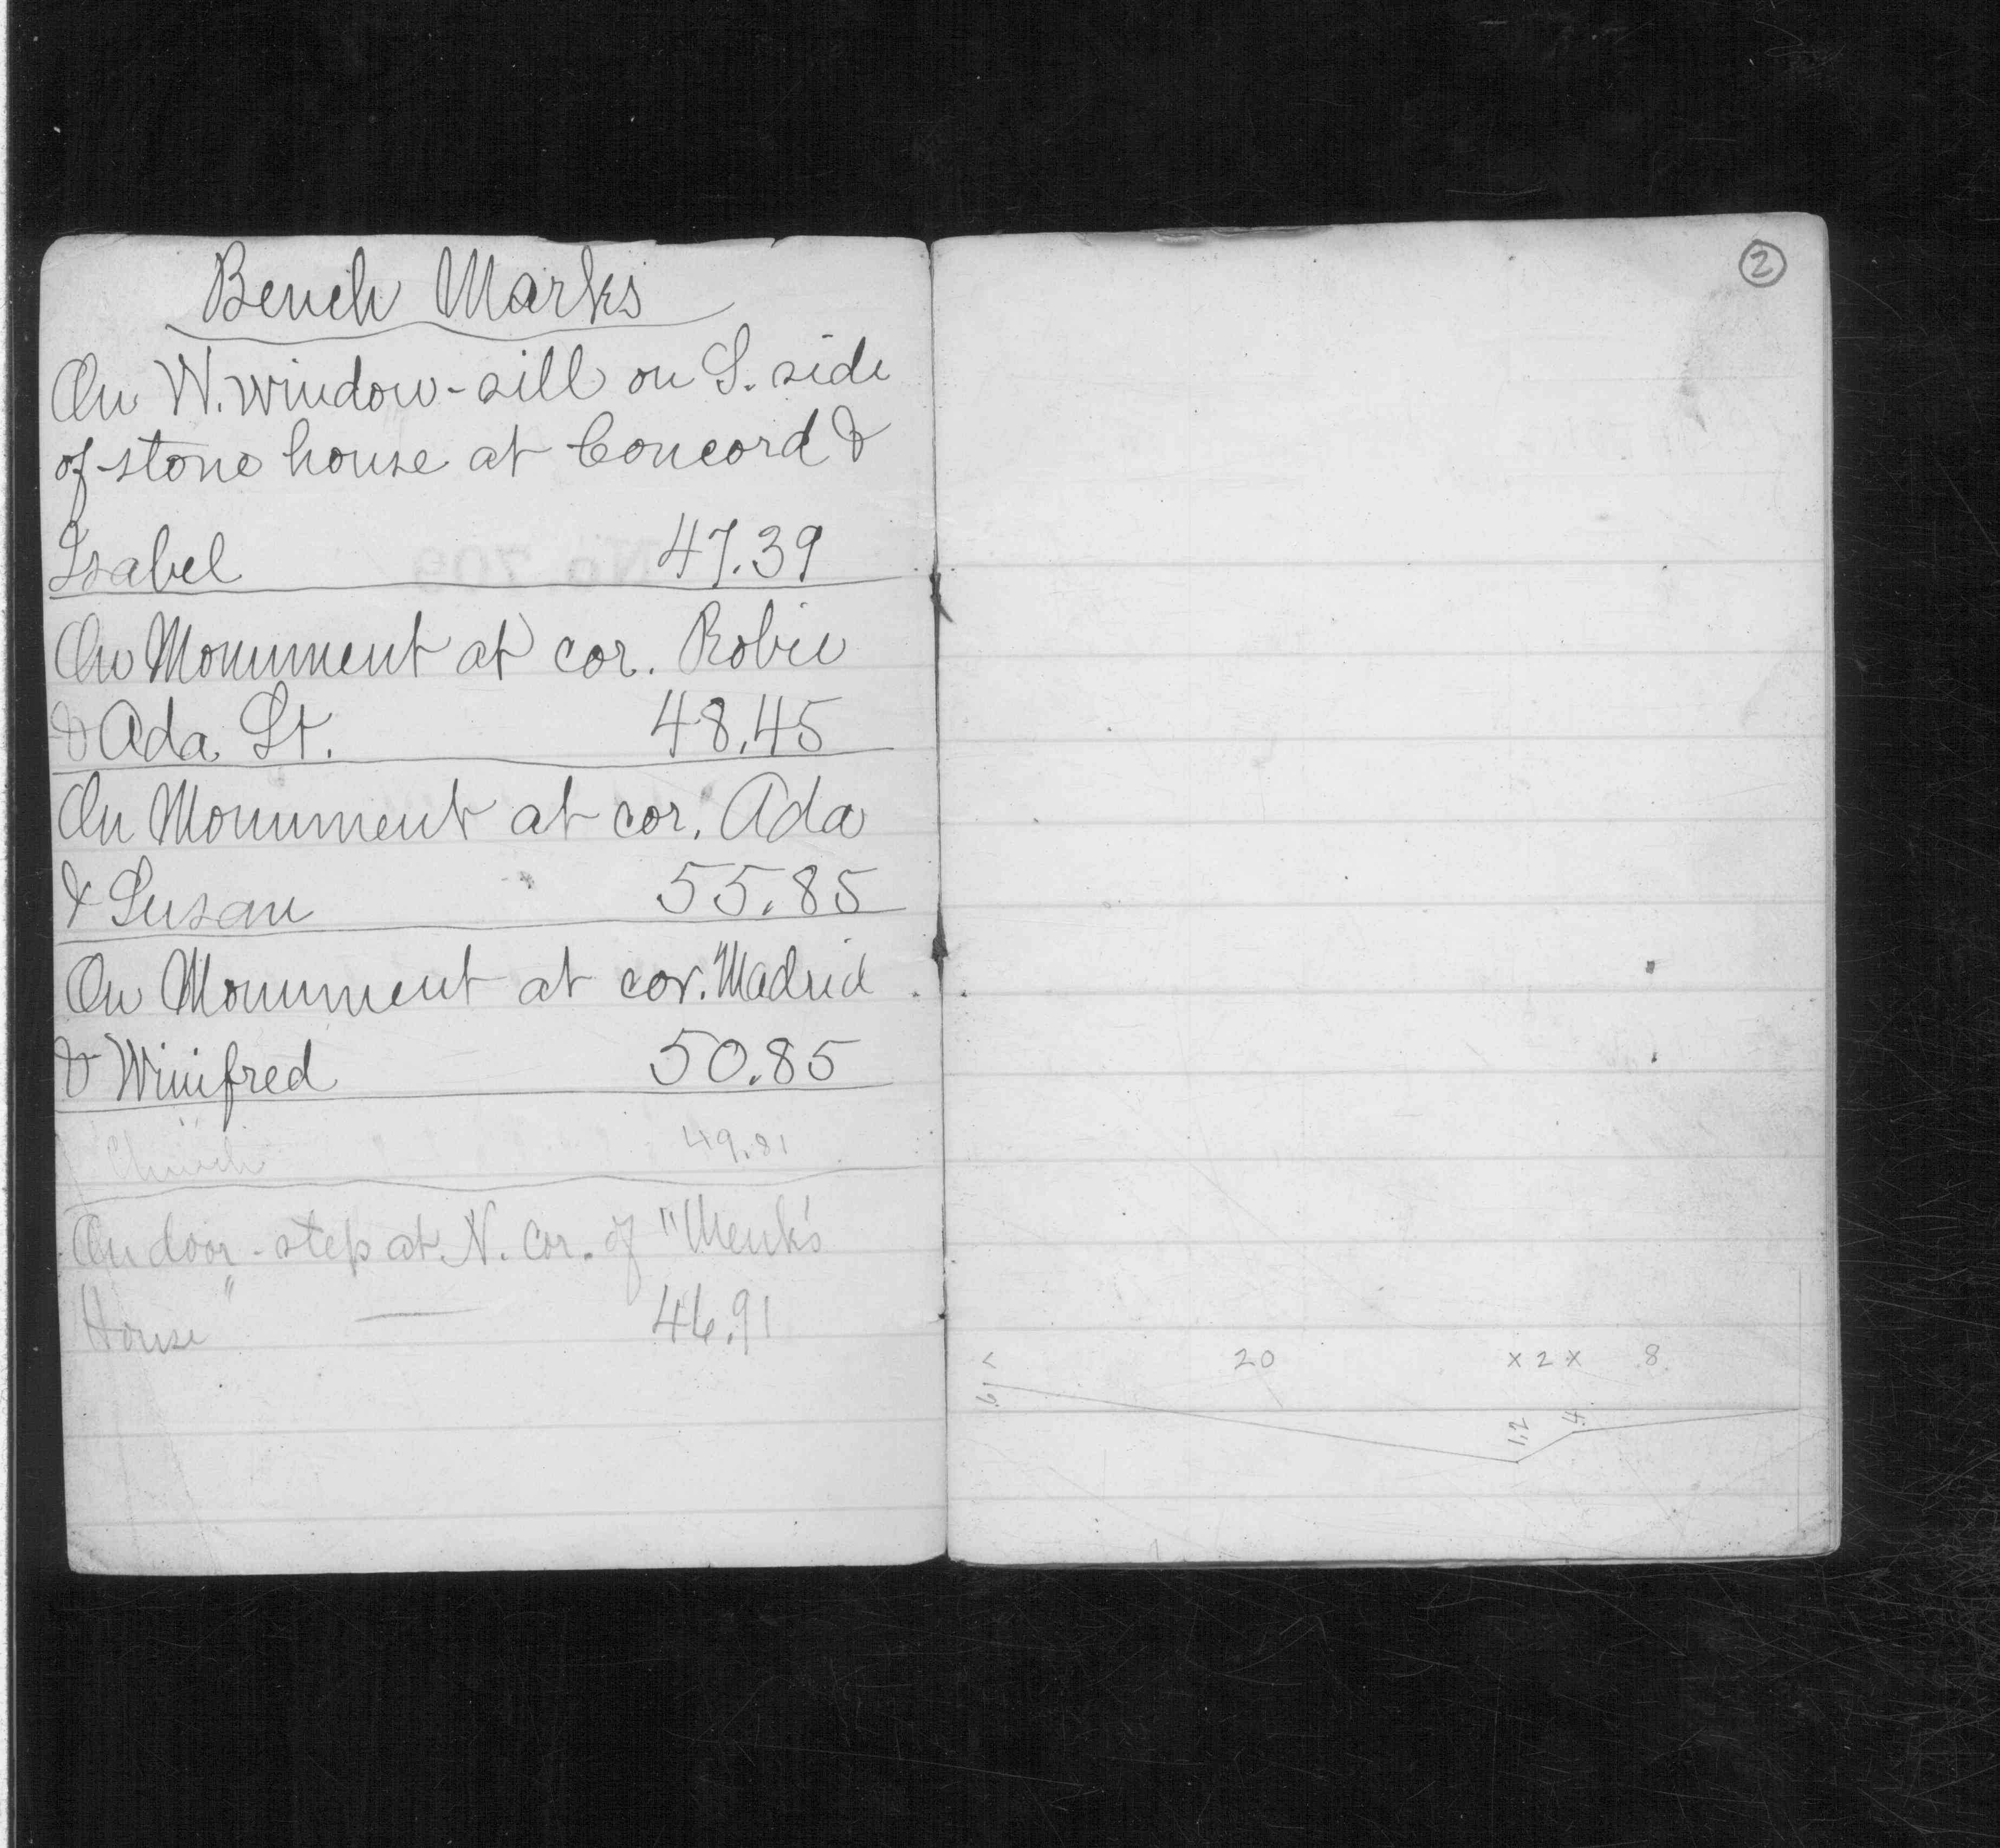 Bench Marks
On W. window-sill on S. side
of stone house at Concord &
Isabel 47.39
On Monument at cor. Robie
& Ada St. 48.45
On Monument at cor. Ada
& Susan 55.85
On Monument at cor. Madrid
& Winifred 50.85
Church 49.81
On door-step at N. cor. of "Menk's
House" — 46.91
2
< 20 x 2 x 8
.6
1.2
.4